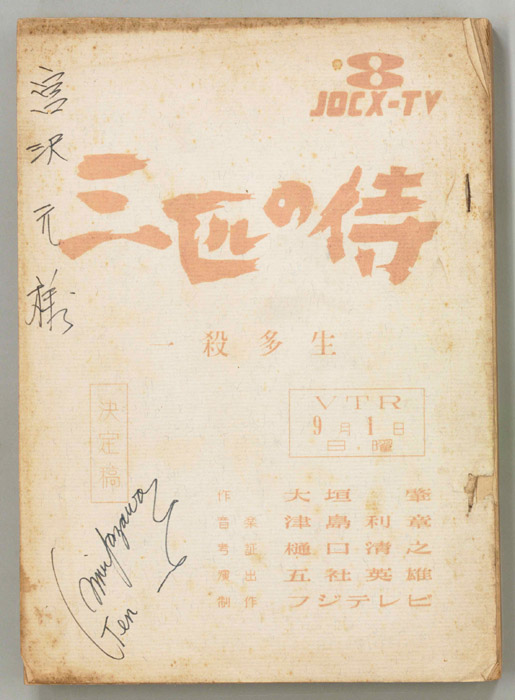 8
JOCX-TV
宮沢元様
三匹の侍
一殺多生
決定稿
VTR
9月1日
日曜
作 大垣肇
音楽 津島利章
考証 樋口清之
演出 五社英雄
制作 フジテレビ
Miyazawa
Ten